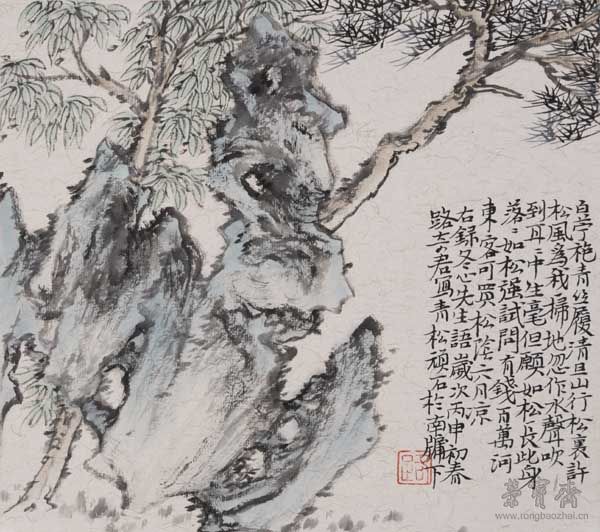 白苧袍青丝履清旦山行松裏許
松風為我掃地忽作水聲吹
到耳〻中生毫但願如松長此身
落〻如松强試問有錢百萬河
東客可買松陰六月凉
右録冬心先生語歲次丙申初春
路君寫青松頑石於南牖下
榮寶齋
www.rongbaozhai.cn